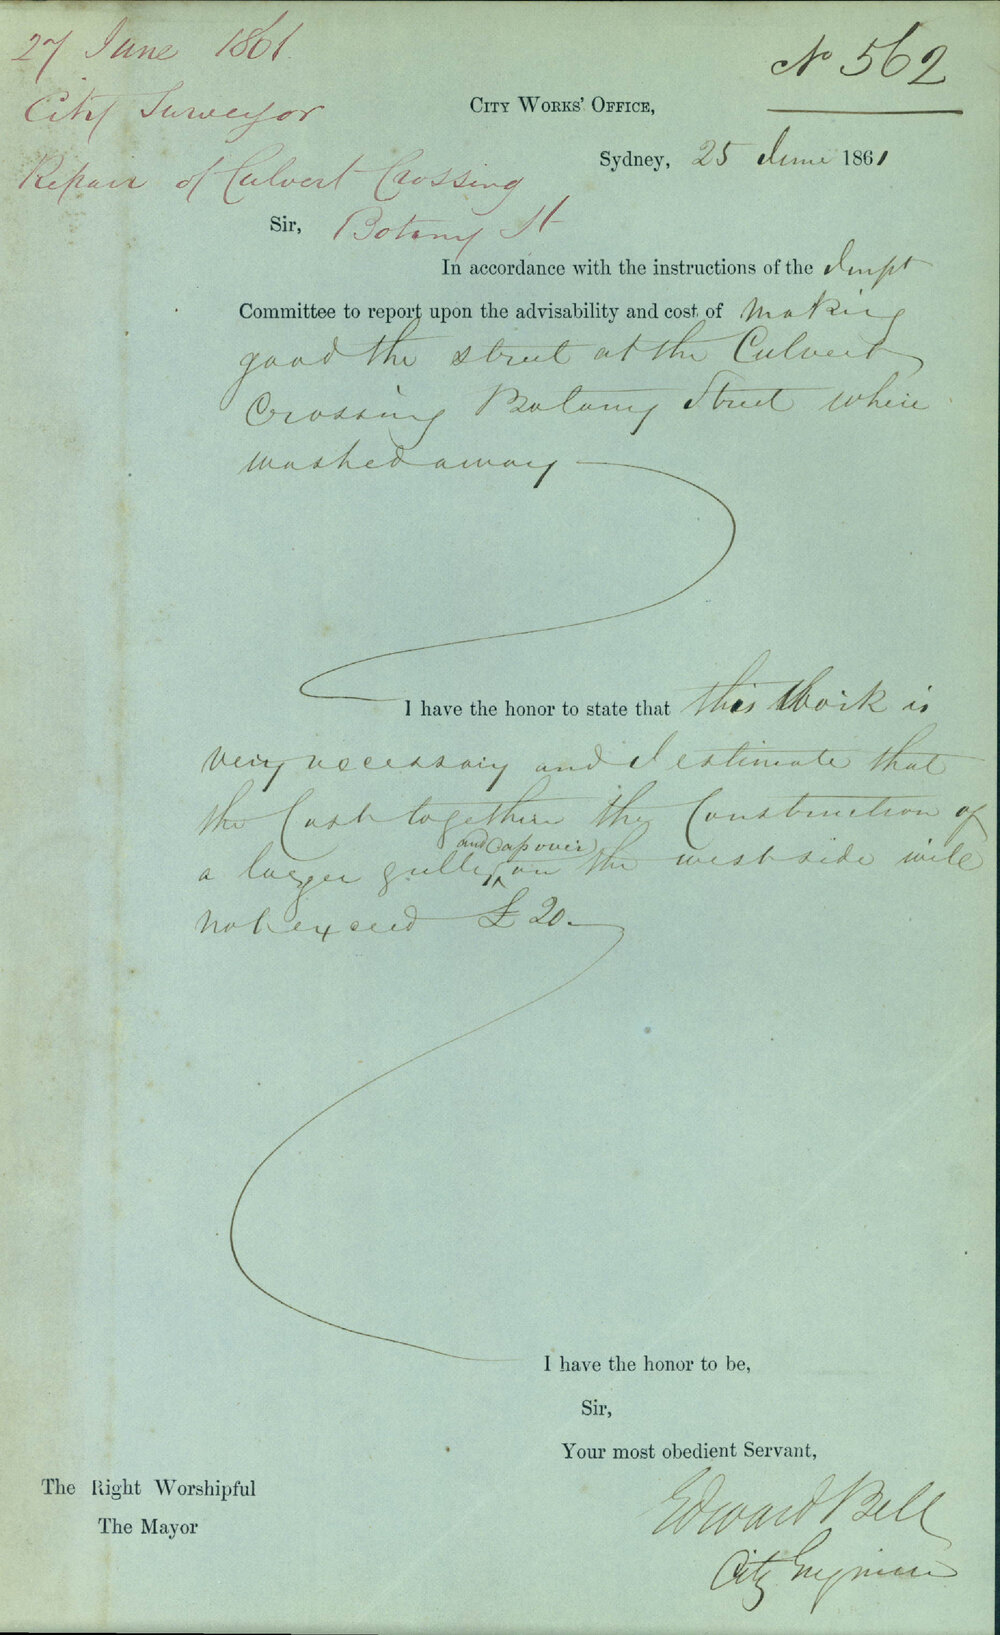 27 June 1861
City Surveyor
Repair of Culvert Crossing
Botany St
No 562
CITY WORKS' OFFICE,
Sydney, 25 June 1861
Sir,
In accordance with the instructions of the Impt
Committee to report upon the advisability and cost of making
good the street at the Culvert
Crossing Botany Street where
washed away
I have the honor to state that this Work is
very necessary and I estimate that
the Cost together the Construction of
and cap over
a larger gully ^ on the west side will
not exceed £20.
I have the honor to be,
Sir,
Your most obedient Servant,
Edward Bell
City Engineer
The Right Worshipful
The Mayor